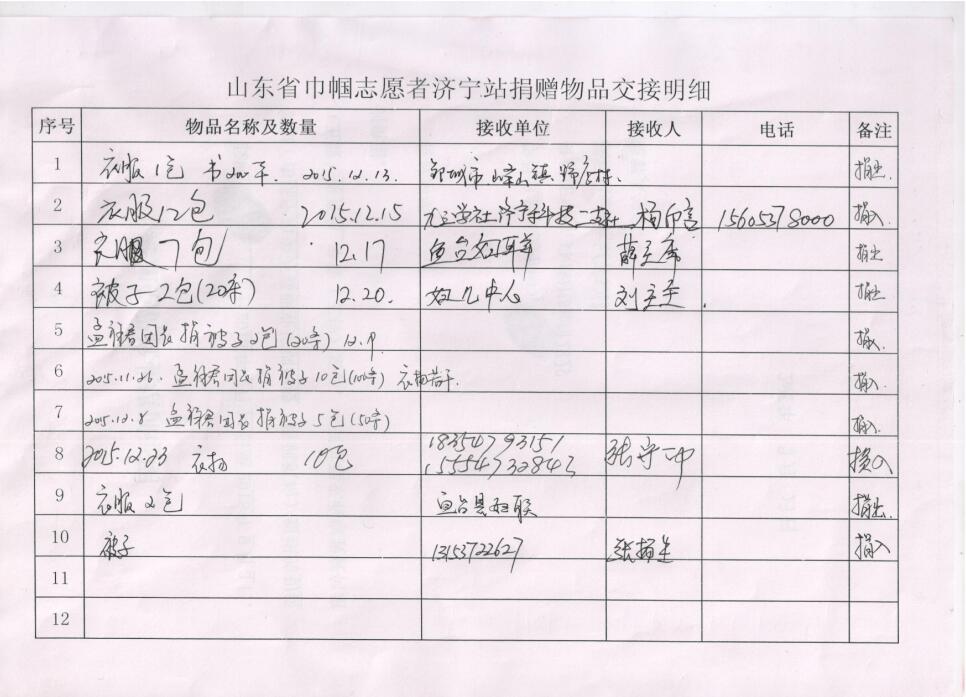 山东省巾帼志愿者济宁站捐赠物品交接明细
序号 物品名称及数量 接收单位 接收人 电话 备注
1 衣服1包 书200本. 2015.12.13. 邹城市峄山镇 捐出.
2 衣服12包 2015.12.15 九三学社济宁科技二支社 杨印言 15605378000 捐入
3 衣服7包 12.17 鱼台妇联 薛主席 捐出
4 被子2包(20条) 12.20. 妇儿中心 刘主任. 捐出
5 孟祥君团长捐被子2包(20条) 12.9. 捐入.
6 2015.11.26. 孟祥君团长捐被子10包(100条) 衣物若干. 捐入.
7 2015.12.8 孟祥君团长捐被子5包(50条) 捐入.
8 2015.12.23 衣物 10包 18354793151 张守冲 捐入
15554732843
9 衣服2包 鱼台县妇联 捐出.
10 被子 13153722627 捐入
11
12